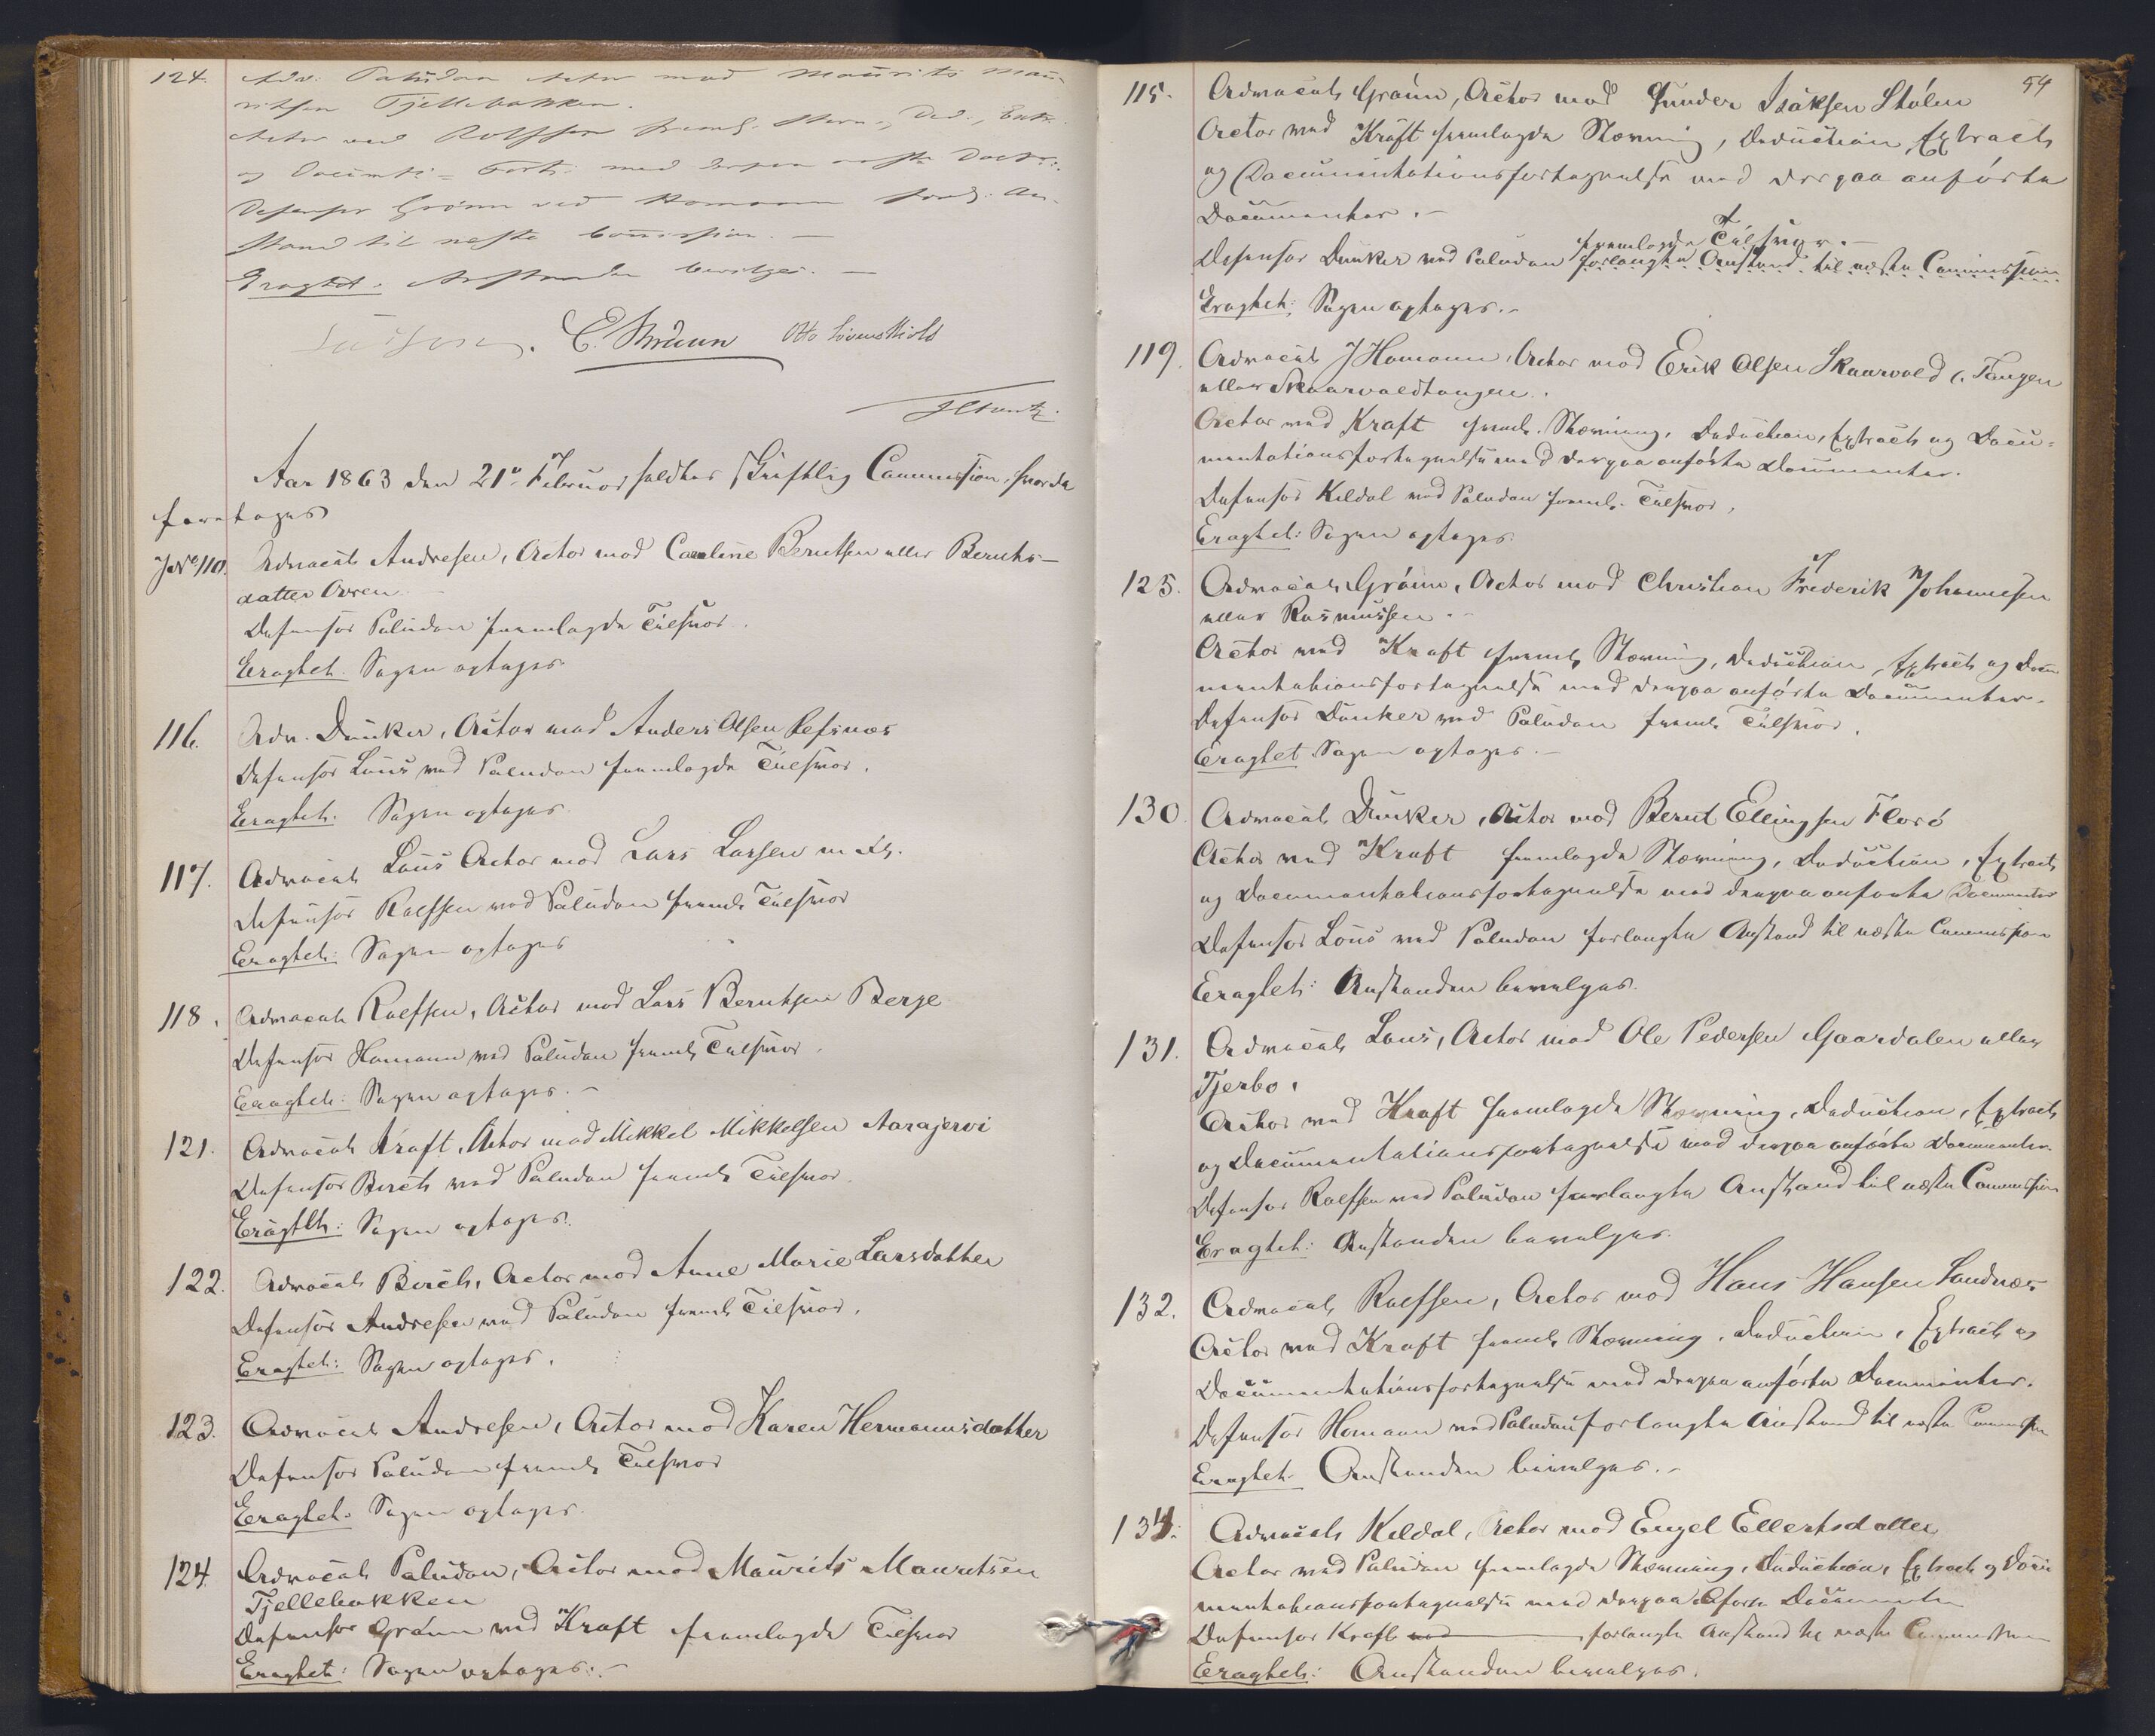 124. Adv: Paludan Actor mod Maurits Mau-
ritsen Tjellebakken.
Actor ved Rolfsen freml. Stevn., Ded., Extr.
og Documts = Fort: med derpaa anførte Docter.
Defensor Grönn ved Homann forl: An-
stand til næste Commission. —
Eragtet: Anstanden bevilges. —
E. Bruun Otto Løvenskiold
Aar 1863 den 21de Februar holdtes Skriftlig Commission, hvorda
foretoges
J No 110. Advocat Andresen, Actor mod Caroline Berntsen eller Bernts-
datter Ovren.
Defensor Paludan fremlagde Tilsvar.
Eragtet. Sagen optages.
116. Adv. Dunker, Actor mod Anders Olsen Refsnæs
Defensor Lous ved Paludan fremlagde Tilsvar.
Eragtet. Sagen optages.
117. Advocat Lous Actor mod Lars Larsen m. fl.
Defensor Rolfsen ved Paludan freml. Tilsvar
Eragtet: Sagen optages
118. Advocat Rolfsen, Actor mod Lars Berntsen Berge
Defensor Homann ved Paludan freml. Tilsvar.
Eragtet: Sagen optages. –
121. Advocat Kraft, Actor mod Mikkel Mikkelsen Aarajervi
Defensor Birch ved Paludan freml. Tilsvar.
Eragtet: Sagen optages.
122. Advocat Birch, Actor mod Anne Marie Larsdatter
Defensor Andresen ved Paludan freml. Tilsvar.
Eragtet: Sagen optages.
123. Advocat Andresen, Actor mod Karen Hermannsdatter
Defensor Paludan freml. Tilsvar
Eragtet. Sagen optages.
124. Advocat Paludan, Actor mod Maurits Mauritsen
Tjellebakken
Defensor Grönn ved Kraft fremlagde Tilsvar
Eragtet: Sagen optages. –
54
115. Advocat Grönn, Actor mod Gunder Isaksen Stólen
Actor ved Kraft fremlagde Stævning, Deduction, Extract
og Documentationsfortegnelse med derpaa anførte
Documenter. –
fremlagde Tilsvar. –
Defensor Dunker ved Paludan forlangte Anstand til næste Commission.
Eragtet: Sagen optages. –
119. Advocat J Homann, Actor mod Erik Olsen Skaarvold v. Tangen
eller Skaarvoldtangen.
Actor ved Kraft freml. Stævning, Deduction, Extract og Docu-
mentationsfortegnelse med derpaa anførte Documenter.
Defensor Kildal ved Paludan freml. Tilsvar,
Eragtet: Sagen optages.
125. Advocat Grönn, Actor mod Christian Frederik Johannesen
eller Rasmussen. –
Actor ved Kraft freml. Stævning, Deduction, Extract og Docu
mentationsfortegnelse med derpaa anførte Documenter.
Defensor Dunker ved Paludan freml. Tilsvar.
Eragtet Sagen optages. –
130. Advocat Dunker, Actor mod Bernt Ellingsen Florö
Actor ved Kraft fremlagde Stævning, Deduction, Extract
og Documentationsfortegnelse med derpaa anførte Documenter
Defensor Lous ved Paludan forlangte Anstand til næste Commission
Eragtet: Anstanden bevilges.
131. Advocat Lous, Actor mod Ole Pedersen Gaardalen eller
Tjerbo.
Actor ved Kraft fremlagde Stævning, Deduction, Extract
og Documentationsfortegnelse med derpaa anførte Documenter.
Defensor Rolfsen ved Paludan forlangte Anstand til næste Commission
Eragtet: Anstanden bevilges.
132. Advocat Rolfsen, Actor mod Hans Hansen Sandnæs
Actor ved Kraft freml. Stævning, Deduction, Extract og
Documentationsfortegnelse med derpaa anførte Documenter.
Defensor Homann ved Paludan forlangte Anstand til næste Commission
Eragtet. Anstanden bevilges. –
134. Advocat Kildal, Actor mod Engel Ellertsdatter
Actor ved Paludan fremlagde Stævning, Deduction, Extract og Docu
mentationsfortegnelse med derpaa anførte Documenter
Defensor Kraft ved forlangte Anstand til næste Commission
Eragtet: Anstanden bevilges.